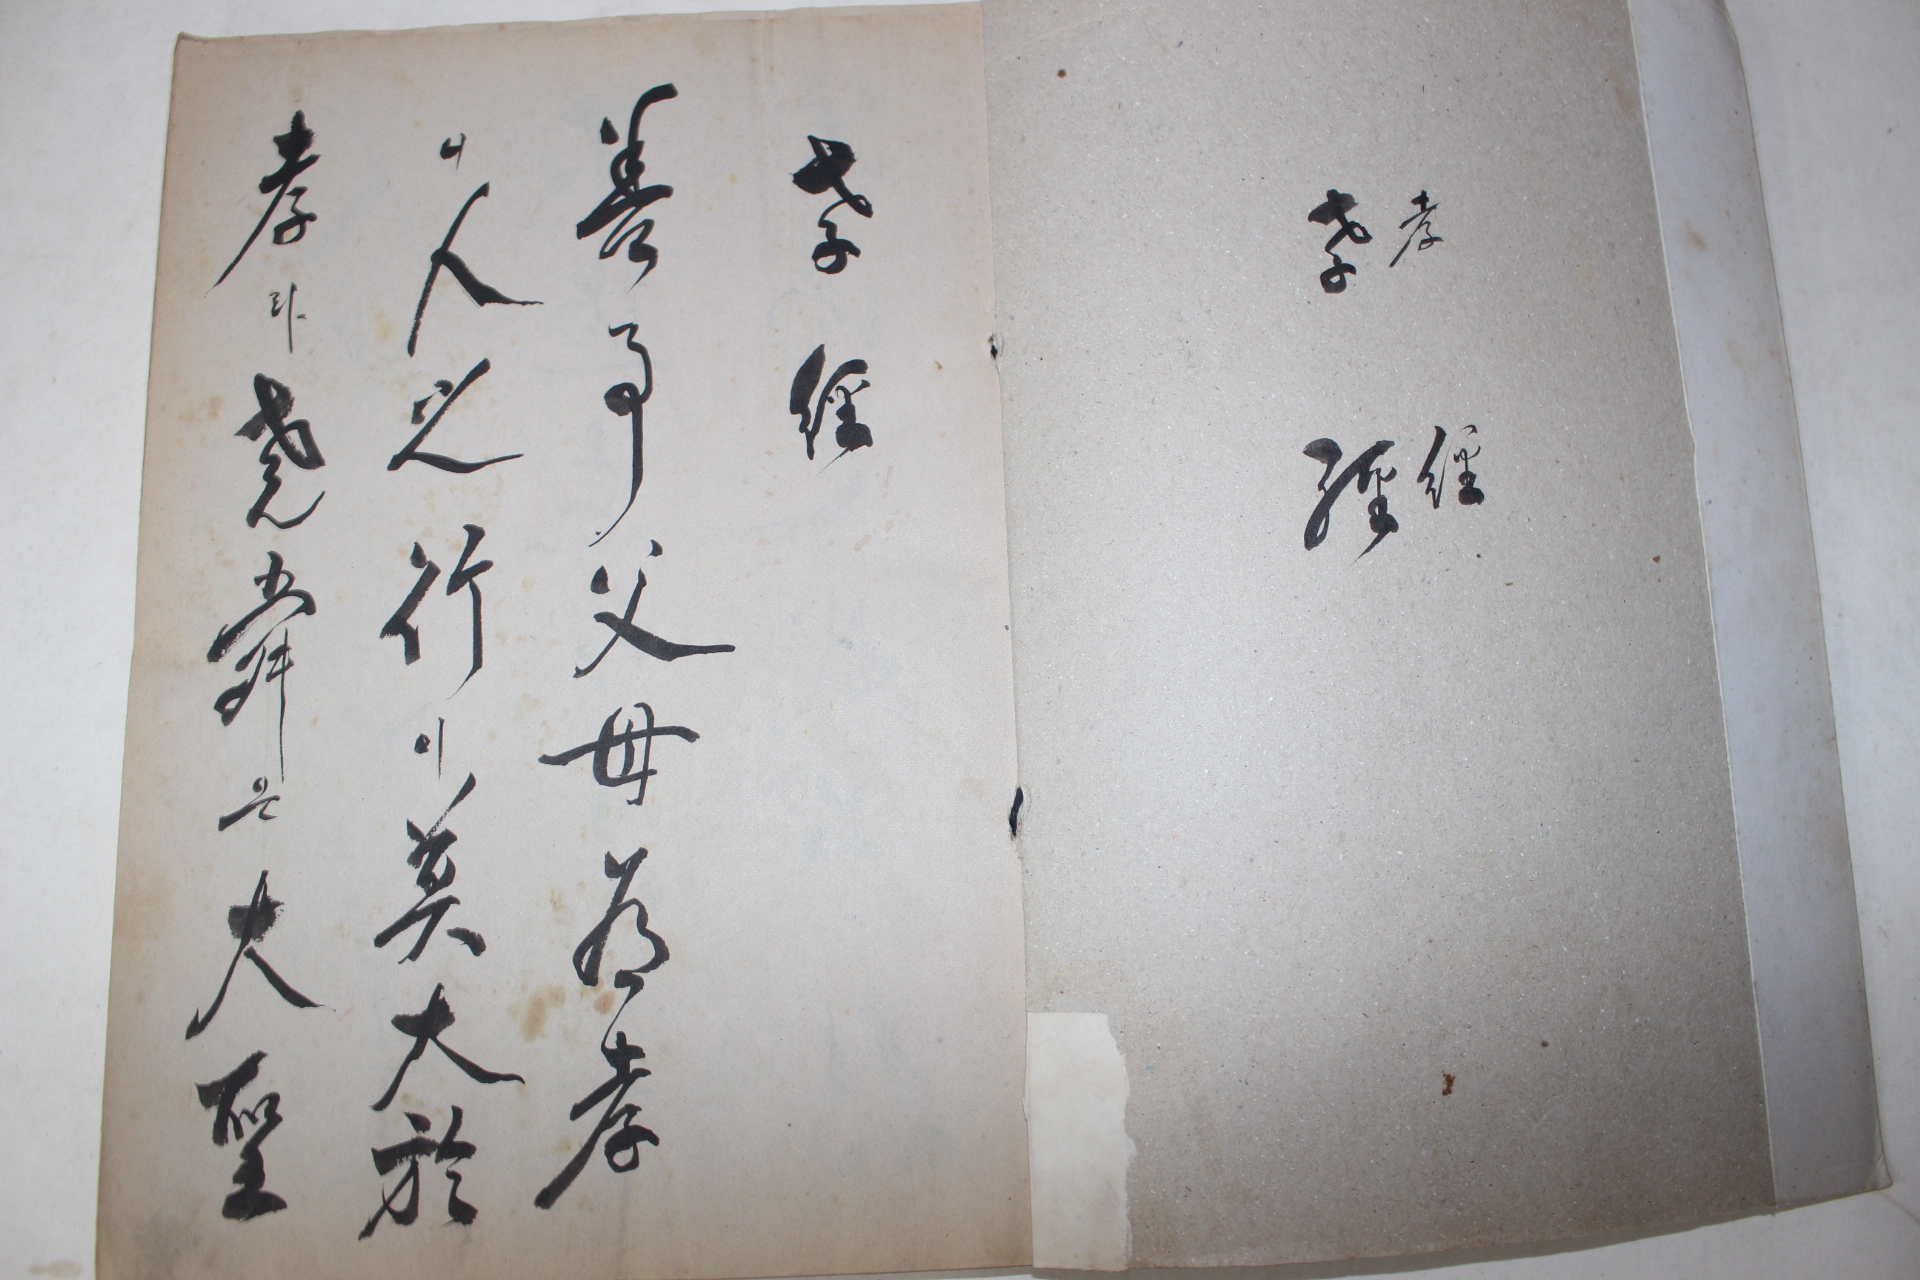 孝
孝
經
經
孝經
善事父母爲孝
니人之行이莫大於
孝라堯舜은大聖